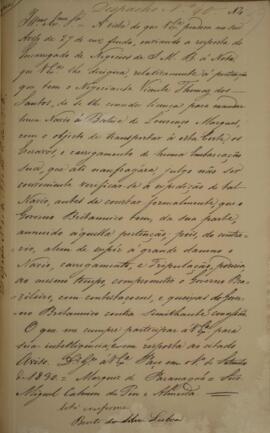 Despacho Nº
Illmo. Exmo. Snr. A vista do que V. Exª. pondera no seu
Aviso de 27 do mez findo, enviando a resposta do
Encarregado de Negocios de S. M. B. á Nota,
que V. Exª. lhe dirigira, relativamente á pertenção
que tem o Negociante Vicente Thomaz dos
Santos, de se lhe conceder licença para mandar
hum Navio á Bahia de Lourenço Marques,
com o objecto de transportar á esta Corte, os
Escravos, e carregamento de huma Embarcação
Sua, que ali naufragára; julgo não ser
conveniente verificar-se a expedição de tal
Navio, antes de constar formalmente, que o
Governo Britannico tem, da sua parte,
annuido áquella pertenção, pois, do contra-
rio, alem de expôr á grande damno o
Navio, carregamento, e Tripulação, poderia
ao mesmo tempo, comprometter o Governo Bra-
zileiro, com contestaçoens, e queixas do Gover-
no Britannico contra Semelhante
O que me cumpre participar a V. Exª. para
sua intelligencia, e em resposta ao citado
Aviso. Ds. Ge. a V. Exª. Paço em 1º de Setembro
de 1830. = Marquez de Paranaguá = Snr.
Miguel Calmon du Pin e Almeida
Está conforme
Bento da Silva Lisboa